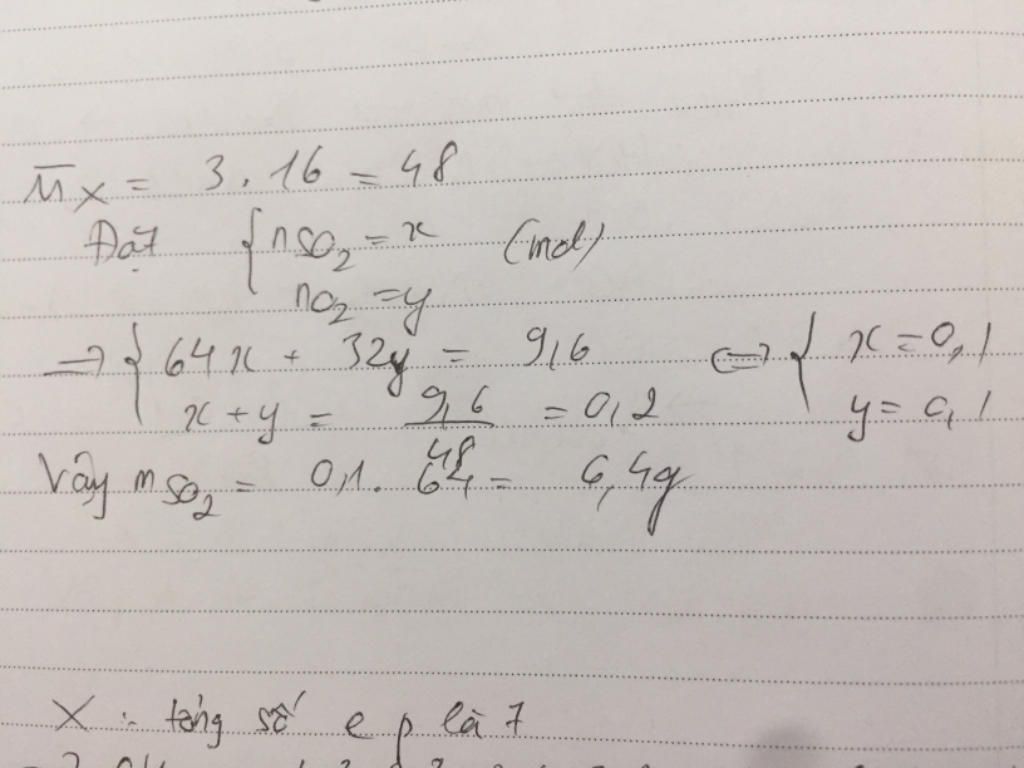 M̅X = 3.16 = 48
Đặt { nSO2 = x (mol)
nO2 = y
=> { 64x + 32y = 9,6 <=> { x = 0,1
x + y = 9,6/48 = 0,2 y = 0,1
Vậy mSO2 = 0,1. 64 = 6,4g
X : tổng số e p là 7